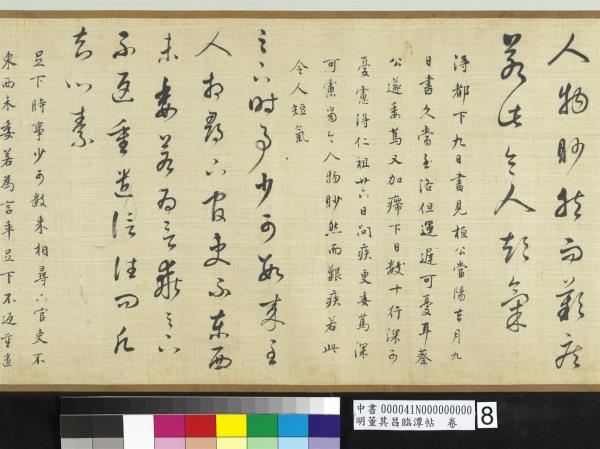 人物眇然而艱疾
若此令人短氣
得都下九日書見桓公當陽去月九
日書久當至洛但運遲可憂耳蔡
公遂委篤又加㿃下日數十行深可
憂慮得仁祖廿六日問疾更委篤深
可慮當今人物眇然而艱疾若此
令人短氣
足下時事少可數來主
人相尋下官吏不東西
未委若為言乖足下
不返重遣信往問凡
知心素
足下時事少可數來相尋六官吏不
東西未委若為言乖足下不返重遣
中書 000041N000000000
明董其昌臨潭帖 卷
8